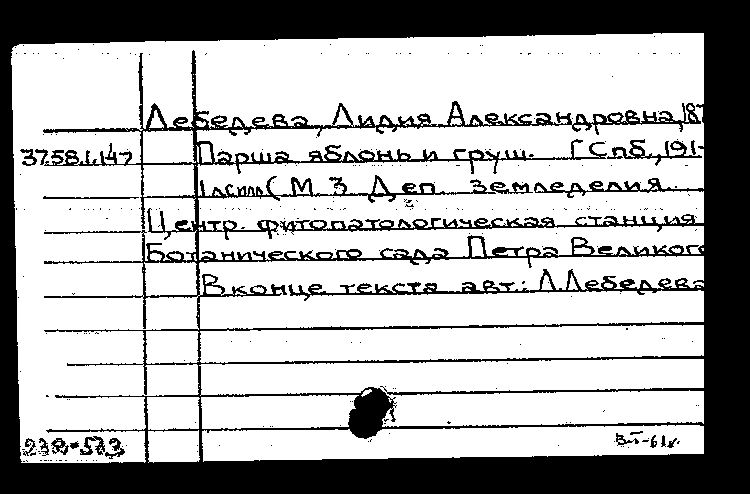 Лебедева, Лидия Александровна, 187
37.58.1.147 Парша яблонь и груш. [Спб., 191-
1 л. с илл. (М. З. Деп. земледелия.
Центр. фитопатологическая станция
Ботанического сада Петра Великого
В конце текста авт.: Л. Лебедева
232-573